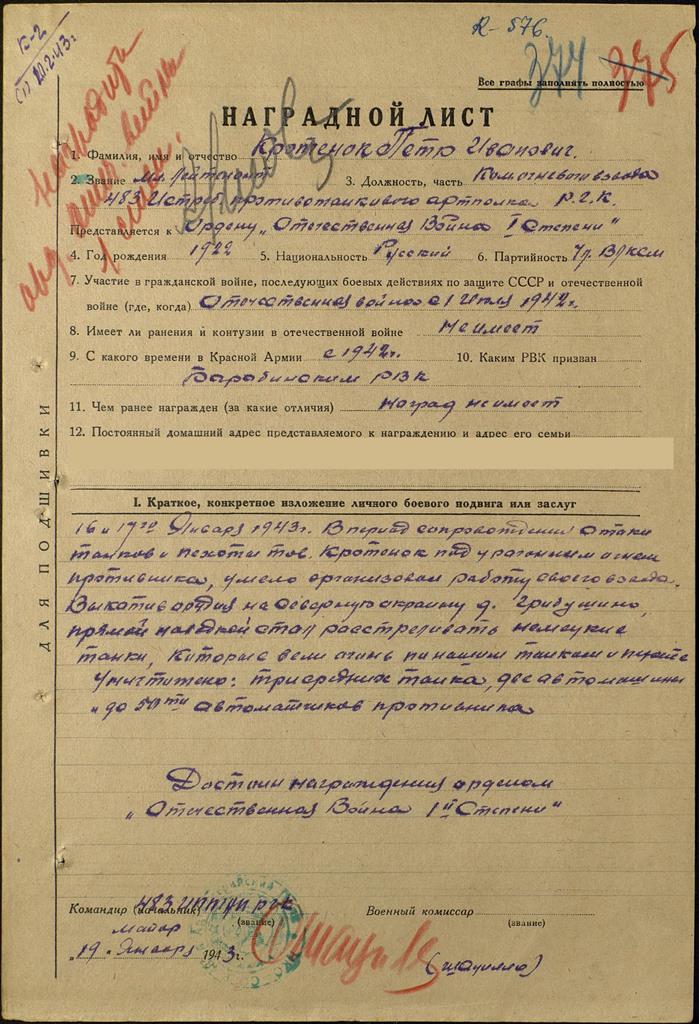 К-2
20.2.43г.
R-576.
374 375
Все графы заполнять полностью
НАГРАДНОЙ ЛИСТ
1. Фамилия, имя и отчество Кротенок Петр Иванович.
2. Звание Мл. Лейтенант 3. Должность, часть Ком. огневого взвода
483 Истреб. противотанкового артполка Р.Г.К.
Представляется к Ордену „Отечественная Война I Степени"
4. Год рождения 1922 5. Национальность Русский 6. Партийность Чл. ВЛКСМ
7. Участие в гражданской войне, последующих боевых действиях по защите СССР и отечественной
войне (где, когда) Отечественная война с 1 Июля 1942г.
8. Имеет ли ранения и контузии в отечественной войне Не имеет
9. С какого времени в Красной Армии с 1942г. 10. Каким РВК призван
Барабинским РВК
11. Чем ранее награжден (за какие отличия) наград не имеет
12. Постоянный домашний адрес представляемого к награждению и адрес его семьи
ДЛЯ ПОДШИВКИ
I. Краткое, конкретное изложение личного боевого подвига или заслуг
16 и 17го Января 1943г. В период сопровождения атаки
танков и пехоты тов. Кротенок под ураганным огнем
противника, умело организовал работу своего взвода.
Выкатив орудия на северную окраину д. Грибушино,
прямой наводкой стал расстреливать немецкие
танки, которые вели огонь по нашим танкам и пехоте
Уничтожено: три средних танка, две автомашины
и до 50ти автоматчиков противника
Достоин награждения орденом
„Отечественная Война Iй Степени"
Командир (начальник) 483 ИПТАП РГК Военный комиссар
(звание) (звание)
майор
„19" Января 1943г.
(Шапилло)